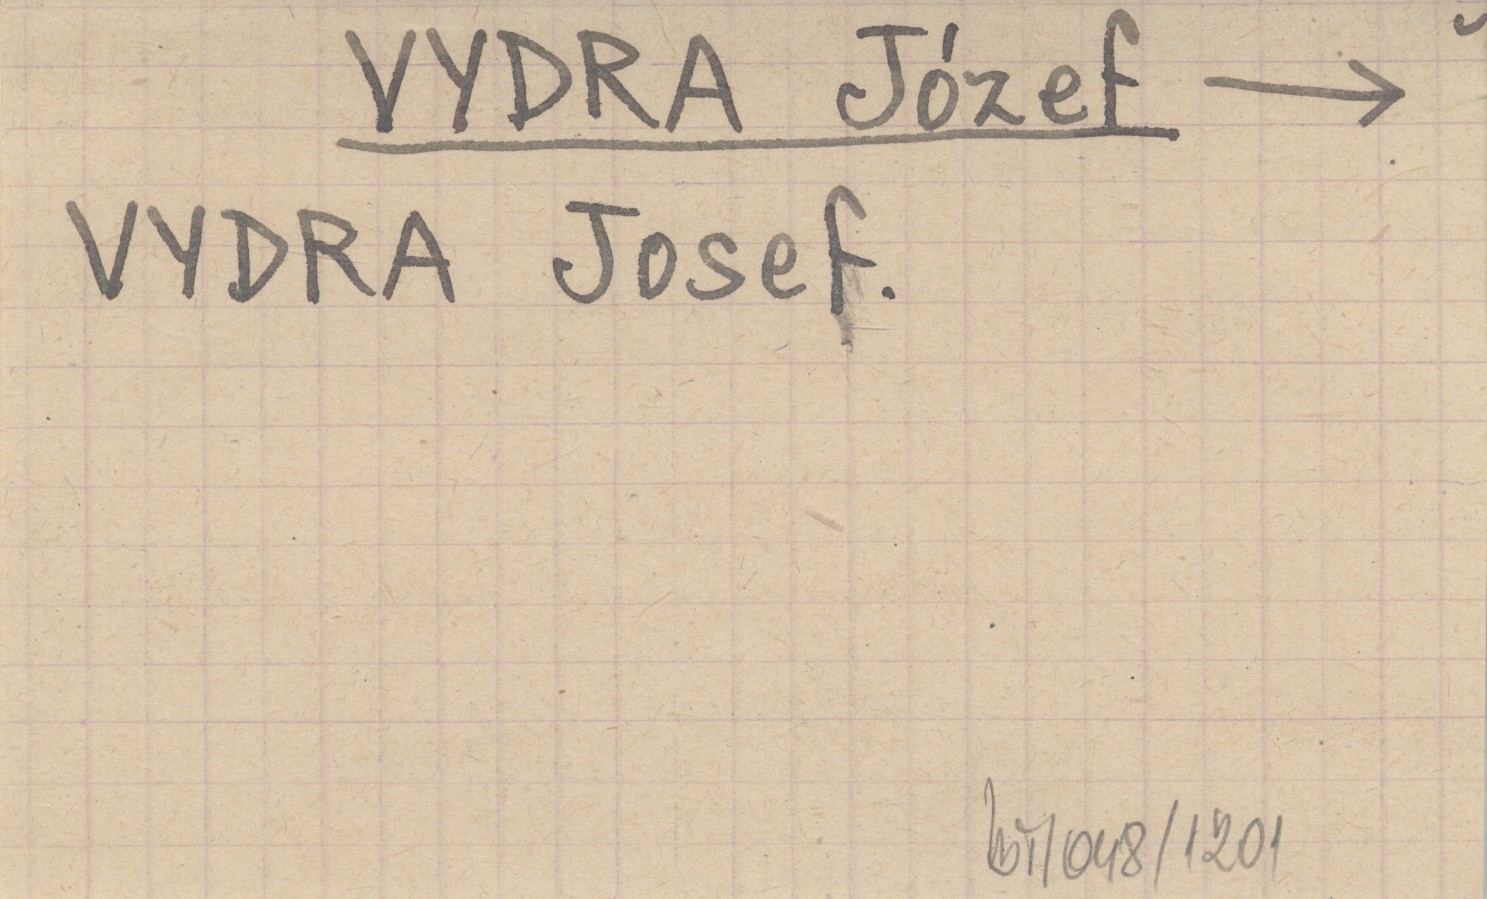 VYDRA Józef →
VYDRA Josef.
/048/1201